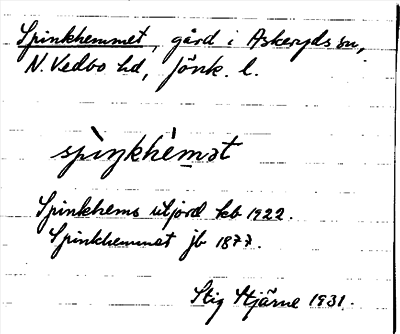 Spinkhemmet, gård i Askeryds sn,
N. Vedbo hd, Jönk. l.
spìŋkhèmət
Spinkhems utjord kb 1922.
Spinkhemmet jb 1877.
Stig Stjärne 1931.